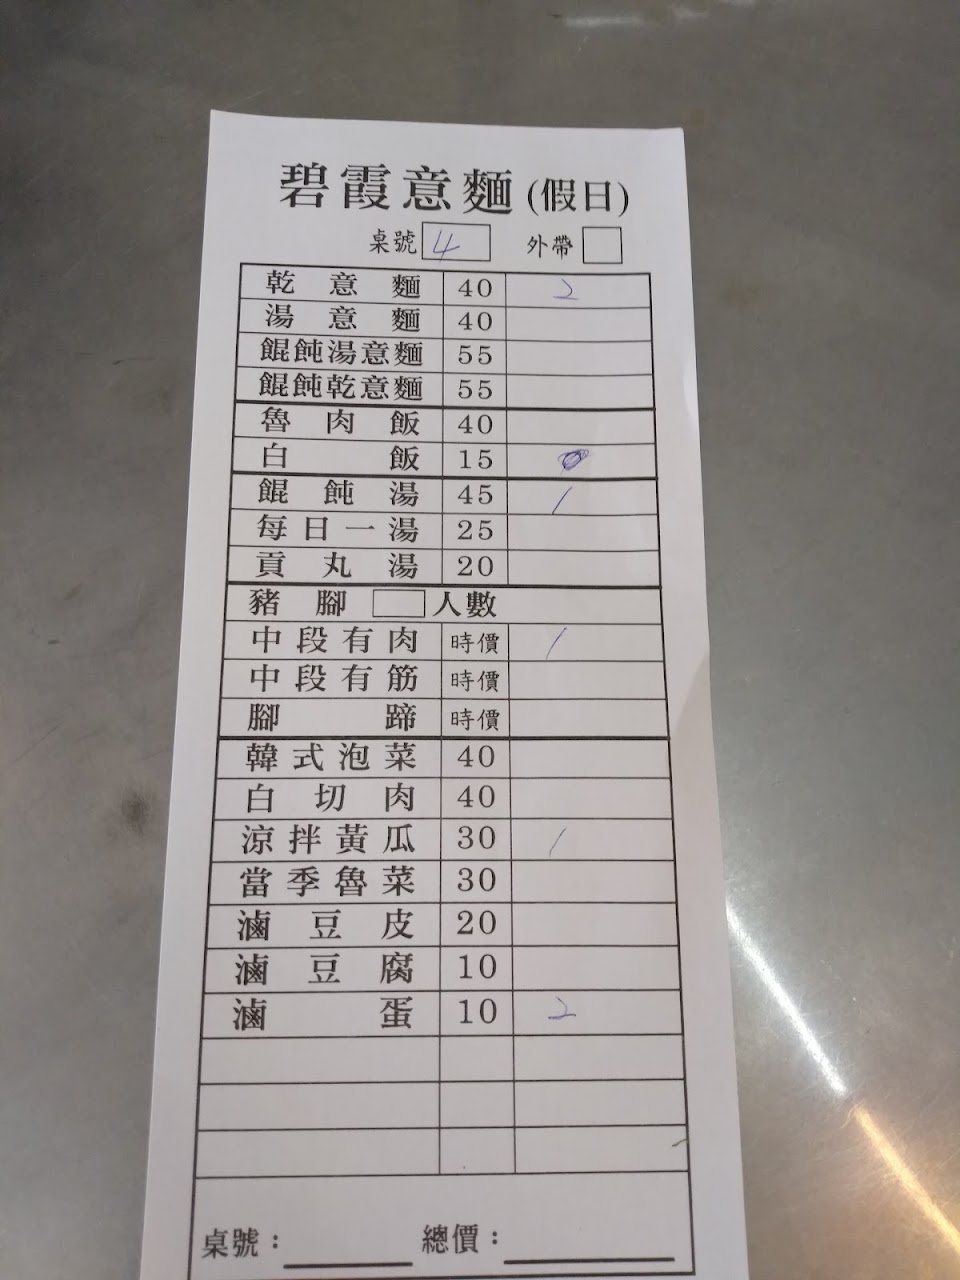 碧霞意麵(假日)
桌號 4 外帶
乾意麵 40 2
湯意麵 40
餛飩湯意麵 55
餛飩乾意麵 55
魯肉飯 40
白飯 15
餛飩湯 45 1
每日一湯 25
貢丸湯 20
豬腳 人數
中段有肉 時價 1
中段有筋 時價
腳蹄 時價
韓式泡菜 40
白切肉 40
涼拌黃瓜 30 1
當季魯菜 30
滷豆皮 20
滷豆腐 10
滷蛋 10 2
桌號： 總價：